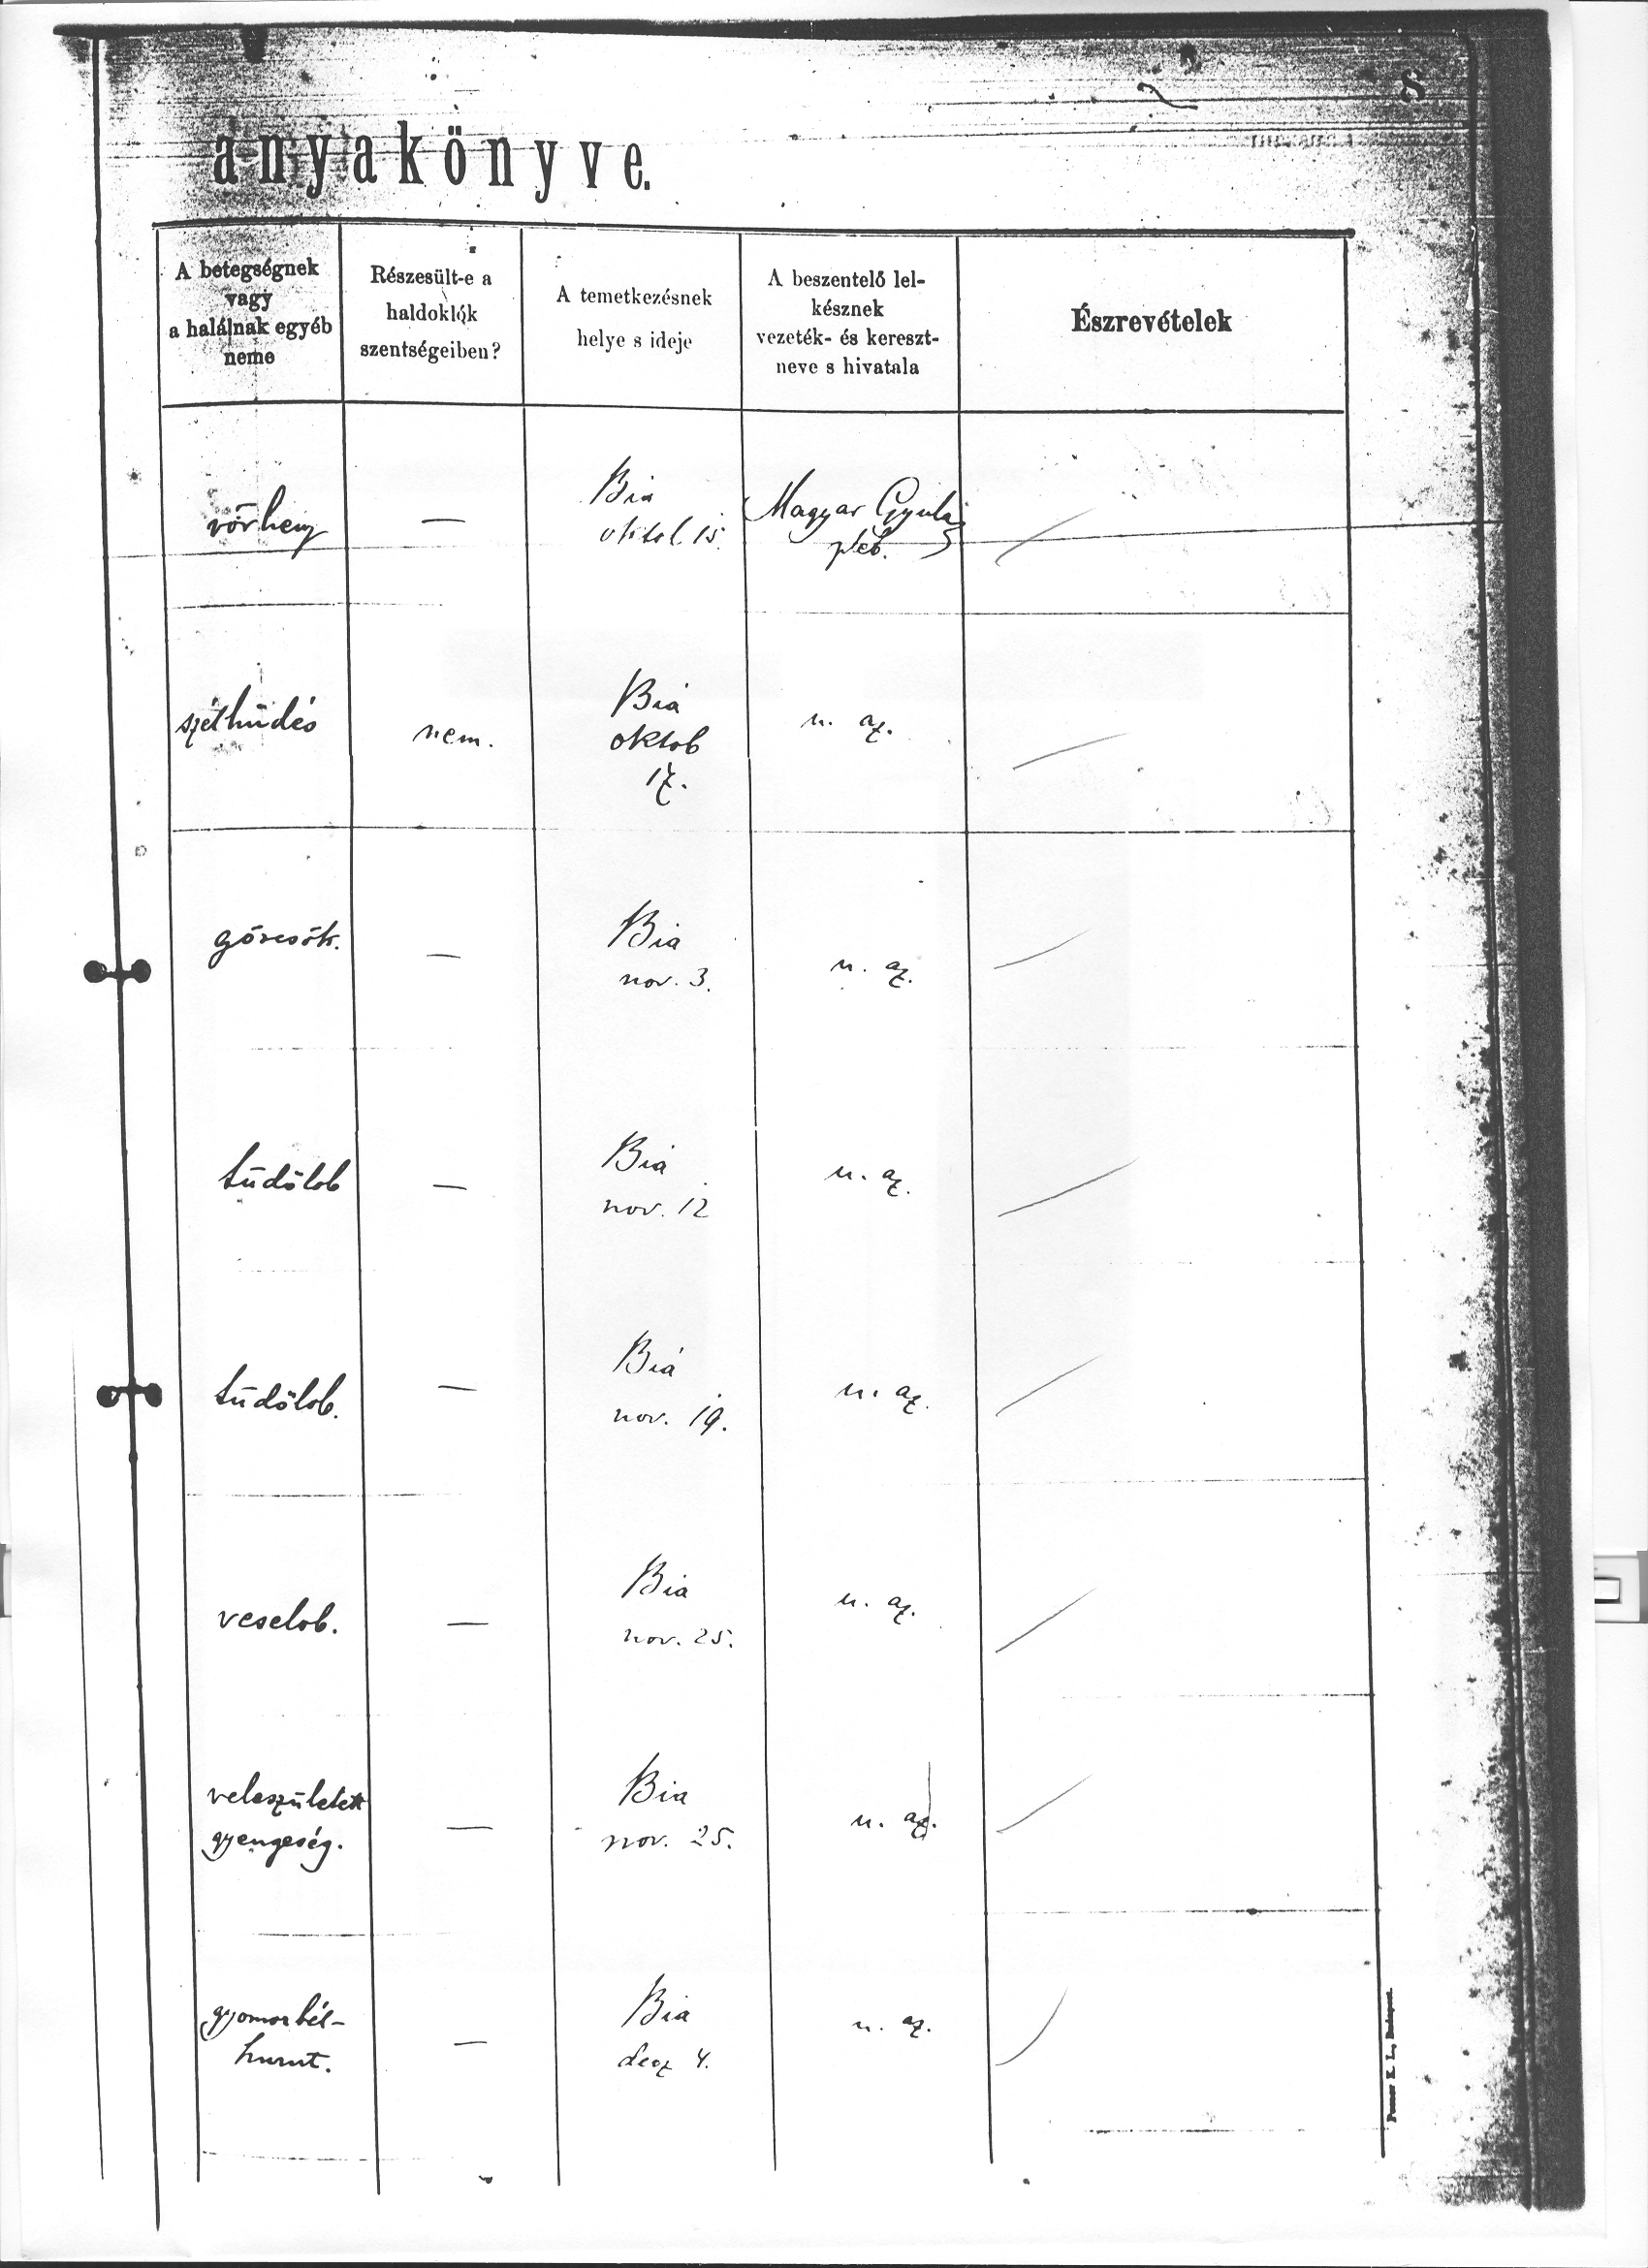 8
anyakönyve.
A betegségnek
vagy
a halálnak egyéb
neme
Részesült-e a
haldoklók
szentségeiben?
A temetkezésnek
helye s ideje
A beszentelő lel-
késznek
vezeték- és kereszt-
neve s hivatala
Észrevételek
vörheny
—
Bia
oktob. 15.
Magyar Gyula
pléb.
szélhűdés
nem.
Bia
oktob
17.
u. az.
görcsök.
—
Bia
nov. 3.
u. az.
tüdőlob
—
Bia
nov. 12
u. az.
tüdőlob.
—
Bia
nov. 19.
u. az.
veselob.
—
Bia
nov. 25.
u. az.
veleszületett
gyengeség.
—
Bia
nov. 25.
u. az.
gyomorbél-
hurut.
—
Bia
decz 4.
u. az.
Posner K. L., Budapest.